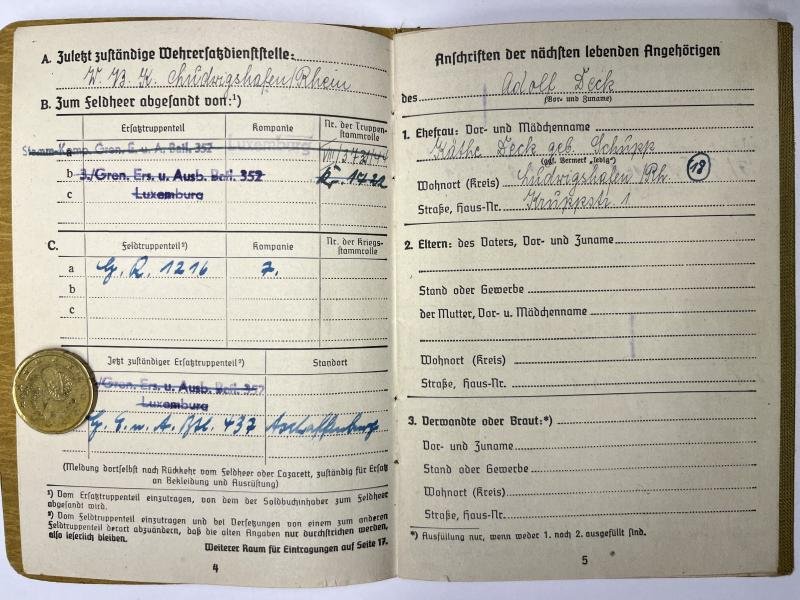 A. Zuletzt zuständige Wehrersatzdienststelle:
W. B. K. Ludwigshafen/Rhein
B. Zum Feldheer abgesandt von:¹)
Ersatztruppenteil Kompanie Nr. der Truppenstammrolle
a Stamm-Komp. Gren. E. u. A. Batl. 352 Luxemburg
b 3./Gren. Ers. u. Ausb. Batl. 352
c Luxemburg
C. Feldtruppenteil²) Kompanie Nr. der Kriegsstammrolle
a G. R. 1216 7.
b
c
Jetzt zuständiger Ersatztruppenteil²) Standort
/Gren. Ers. u. Ausb. Batl. 352
Luxemburg
G. E. u. A. Btl. 437 Aschaffenburg
(Meldung dortselbst nach Rückkehr vom Feldheer oder Lazarett, zuständig für Ersatz
an Bekleidung und Ausrüstung)
¹) Vom Ersatztruppenteil einzutragen, von dem der Soldbuchinhaber zum Feldheer
abgesandt wird.
²) Vom Feldtruppenteil einzutragen und bei Versetzungen von einem zum anderen
Feldtruppenteil derart abzuändern, daß die alten Angaben nur durchstrichen werden,
also leserlich bleiben.
Weiterer Raum für Eintragungen auf Seite 17.
4
Anschriften der nächsten lebenden Angehörigen
des Adolf Deck
(Vor- und Zuname)
1. Ehefrau: Vor- und Mädchenname
Käthe Deck geb. Schupp
(ggf. Vermerk „ledig")
Wohnort (Kreis) Ludwigshafen/Rh 18
Straße, Haus-Nr. Kruppstr 1
2. Eltern: des Vaters, Vor- und Zuname
Stand oder Gewerbe
der Mutter, Vor- u. Mädchenname
Wohnort (Kreis)
Straße, Haus-Nr.
3. Verwandte oder Braut:*)
Vor- und Zuname
Stand oder Gewerbe
Wohnort (Kreis)
Straße, Haus-Nr.
*) Ausfüllung nur, wenn weder 1. noch 2. ausgefüllt sind.
5